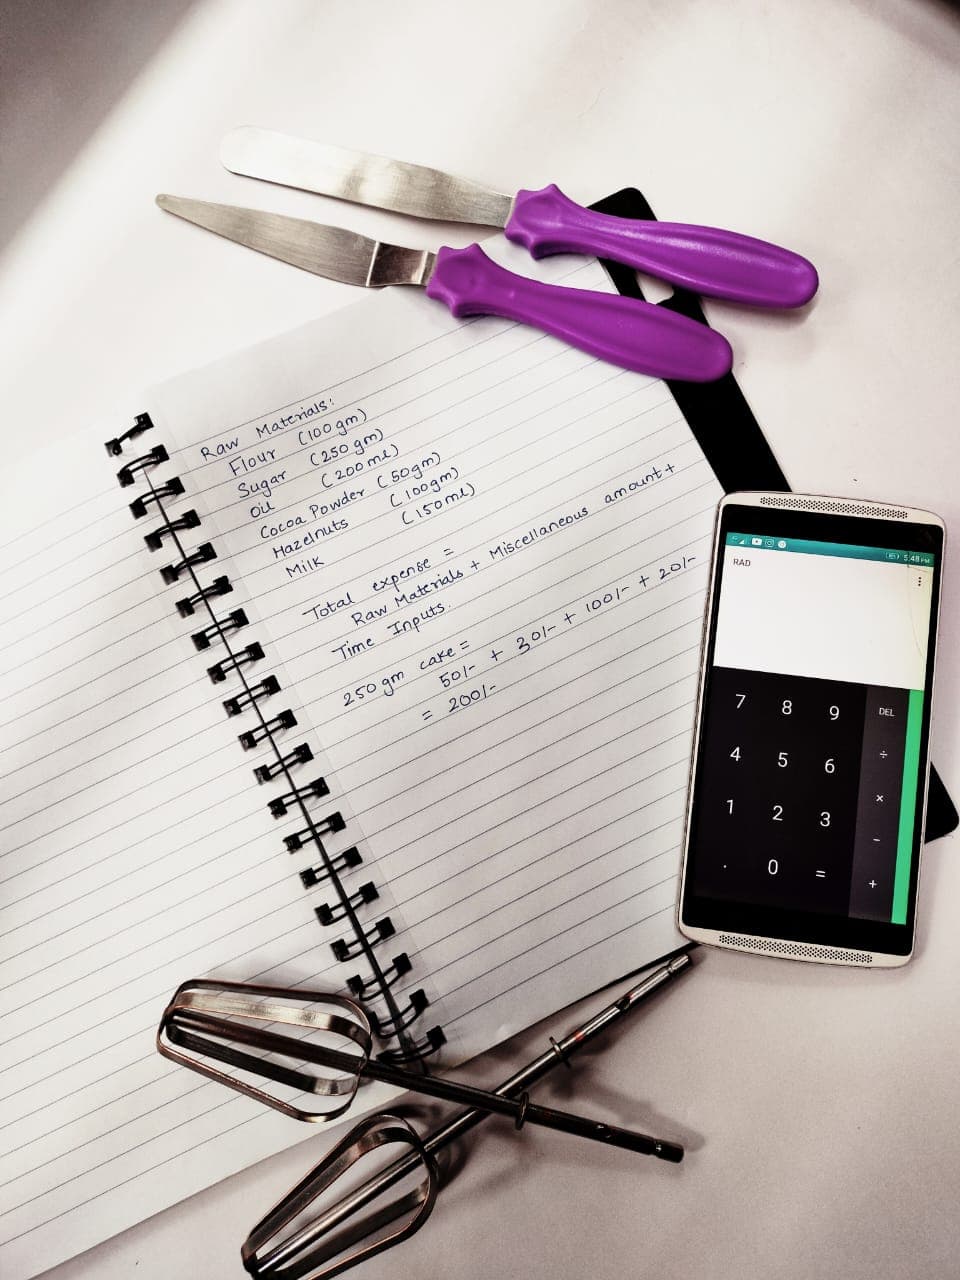 Raw Materials:
Flour (100gm)
Sugar (250gm)
Oil (200ml)
Cocoa Powder (50gm)
Hazelnuts (100gm)
Milk (150ml)
Total expense =
Raw Materials + Miscellaneous amount +
Time Inputs.
250gm cake =
50/- + 30/- + 100/- + 20/-
= 200/-
5:48 PM
RAD
7 8 9 DEL
4 5 6 ÷
1 2 3 ×
. 0 = −
+